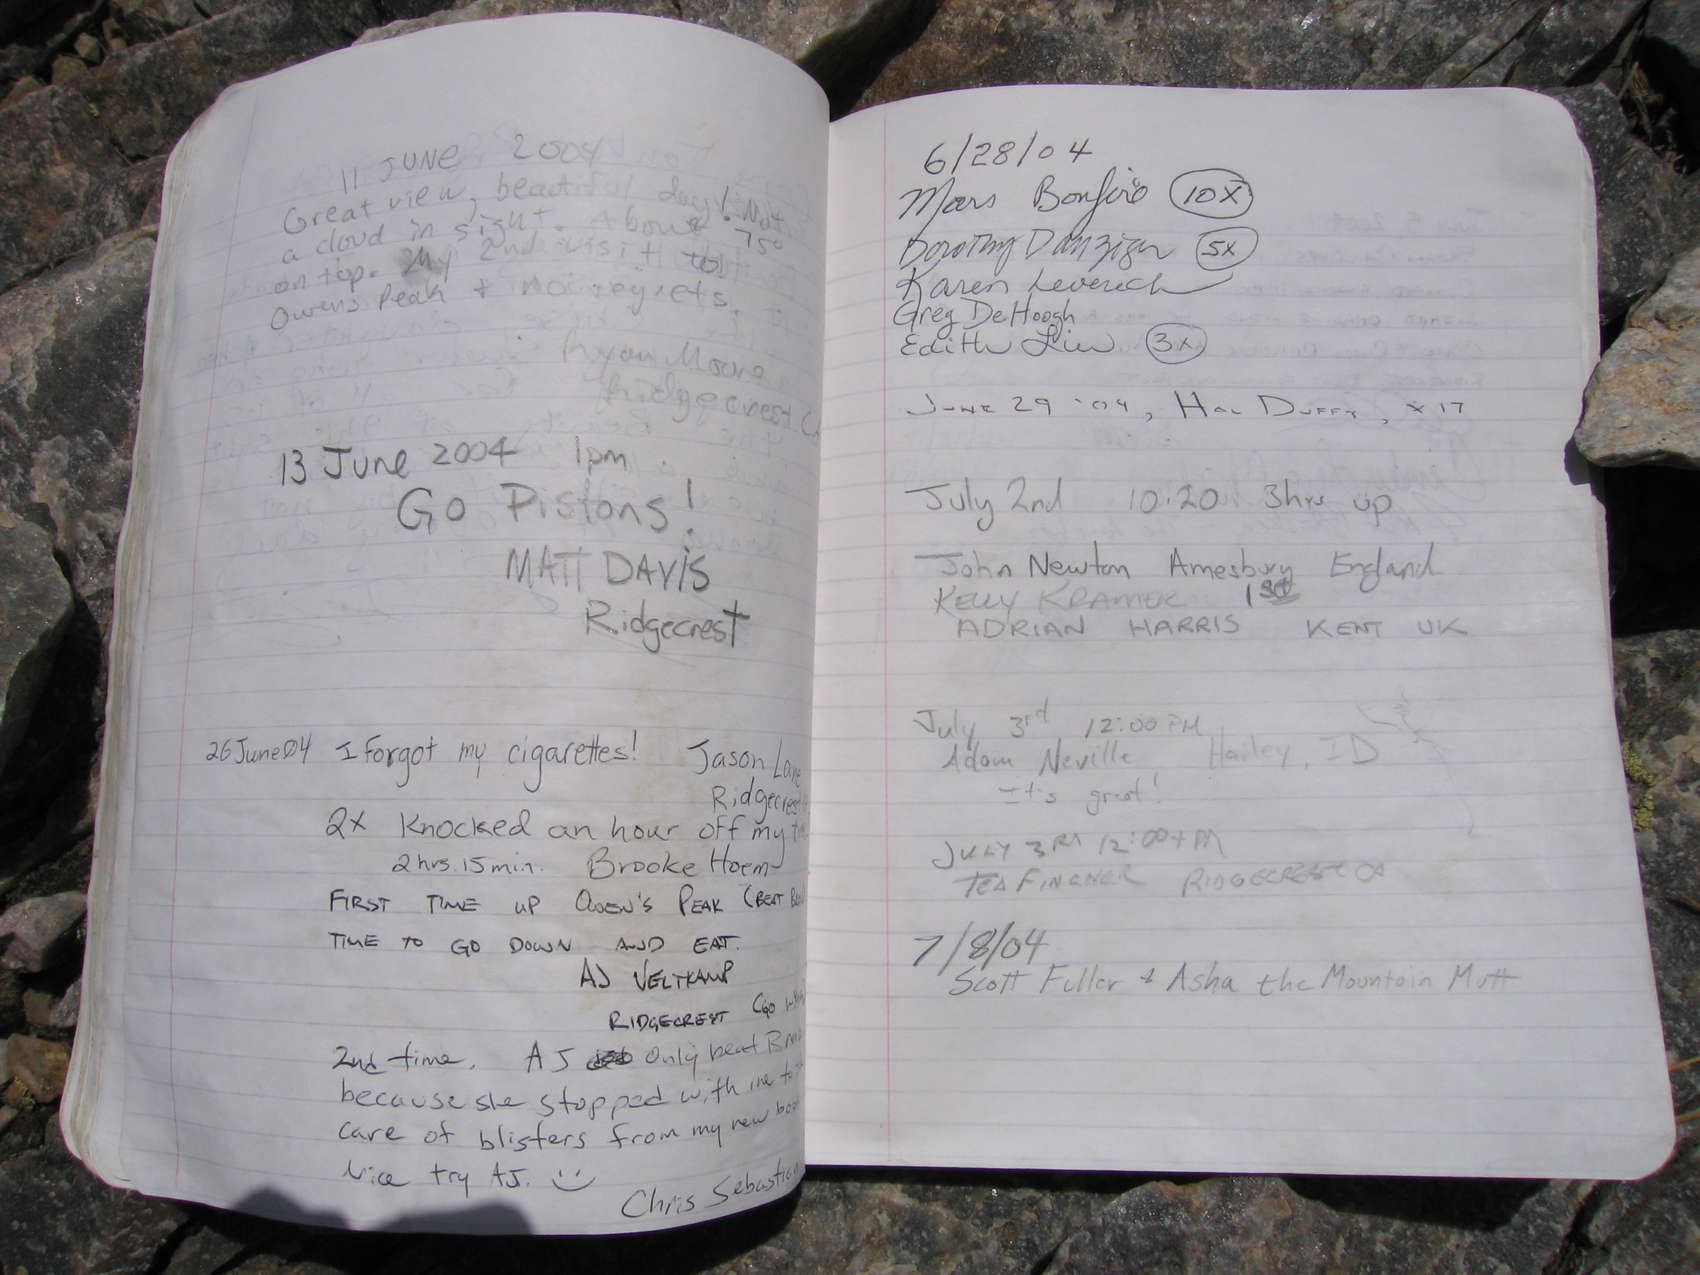 11 JUNE 2004
Great view, beautiful day! Not
a cloud in sight. About 75°
on top. My 2nd visit to
Owens Peak + no regrets.
Ryan Moore
Ridgecrest CA
13 June 2004 1pm
Go Pistons!
MATT DAVIS
Ridgecrest
26 June 04 I forgot my cigarettes! Jason Lane
Ridgecrest
2x Knocked an hour off my
2 hrs. 15 min. Brooke Hoem
FIRST TIME UP OWEN'S PEAK (BEAT
TIME TO GO DOWN AND EAT.
AJ VELTKAMP
RIDGECREST (GO
2nd time. AJ only beat
because she stopped with me to
care of blisters from my new
Nice try AJ. :)
Chris Sebastian
6/28/04
Mars Bonfire 10X
Dorothy Danziger 5X
Karen Leverich
Greg DeHoogh
Edith Liu 3X
JUNE 29 '04, HAL DUFFY, X17
July 2nd 10:20 3hrs up
John Newton Amesbury England
KELLY KRAMER 1st
ADRIAN HARRIS KENT UK
July 3rd 12:00 PM
Adam Neville Hailey, ID
It's great!
JULY 3RD 12:00 PM
RIDGECREST CA
7/8/04
Scott Fuller + Asha the Mountain Mutt